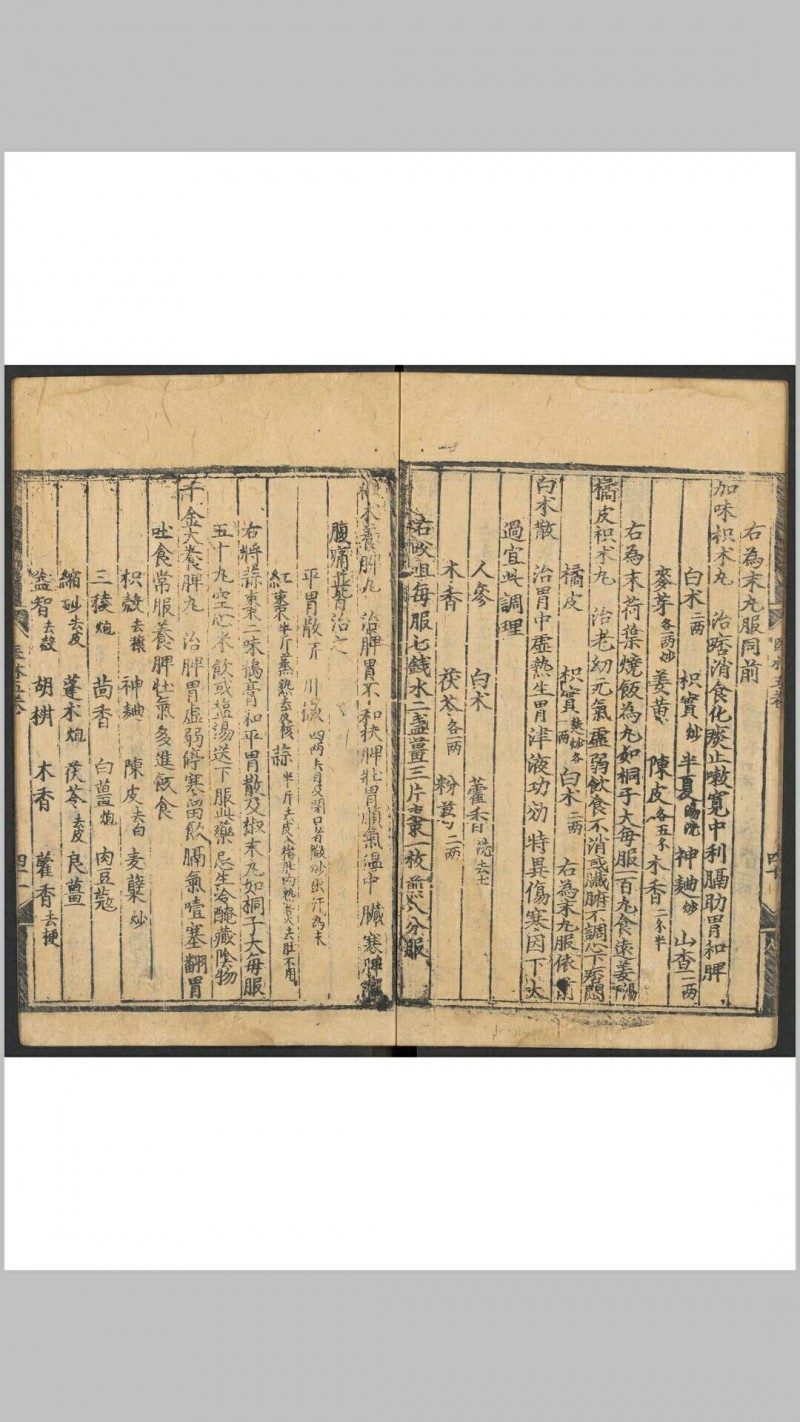 右為末丸服同前
加味枳朮丸 治痞消食化痰止嗽寬中利膈助胃和脾
白朮二兩 枳實炒 半夏湯洗 神麯炒 山查一兩
麥芽各一兩炒 姜黄 陳皮各五錢 木香二錢半
右為末荷葉燒飯為丸如桐子大每服一百丸食遠姜湯
橘皮枳朮丸 治老幼元氣虛弱飲食不消或臟腑不調心下痞悶
橘皮 枳實麩炒各一兩 白朮二兩 右為末丸服依前
白朮散 治胃中虛熱生胃津液功効特異傷寒因下太
過宜此調理
人參 白朮 藿香洗去土
木香 茯苓各一兩 粉葛二兩
右㕮咀每服七錢水二盞薑三片棗一枚煎八分服
朮養脾丸 治脾胃不和快脾壯胃順氣溫中臟寒
腹痛並皆治之
平胃散 川椒四兩去目及閉口者微炒出汗為末
紅棗半斤蒸熟去皮核 蒜半斤去皮入猪肚内熟煮去肚不用
右將蒜棗二味搗膏和平胃散及椒末丸如桐子大每服
五十丸空心米飲或塩湯送下服此藥忌生冷醃藏陰物
千金大養脾丸 治脾胃虛弱停塞留飲膈氣噎塞翻胃
吐食常服養脾壯氣多進飯食
枳殼去穰 神麯 陳皮去白 麦蘖炒
三稜炮 茴香 白薑炮 肉豆蔻
縮砂去皮 蓬朮炮 茯苓去皮 良薑
益智去殼 胡椒 木香 藿香去梗